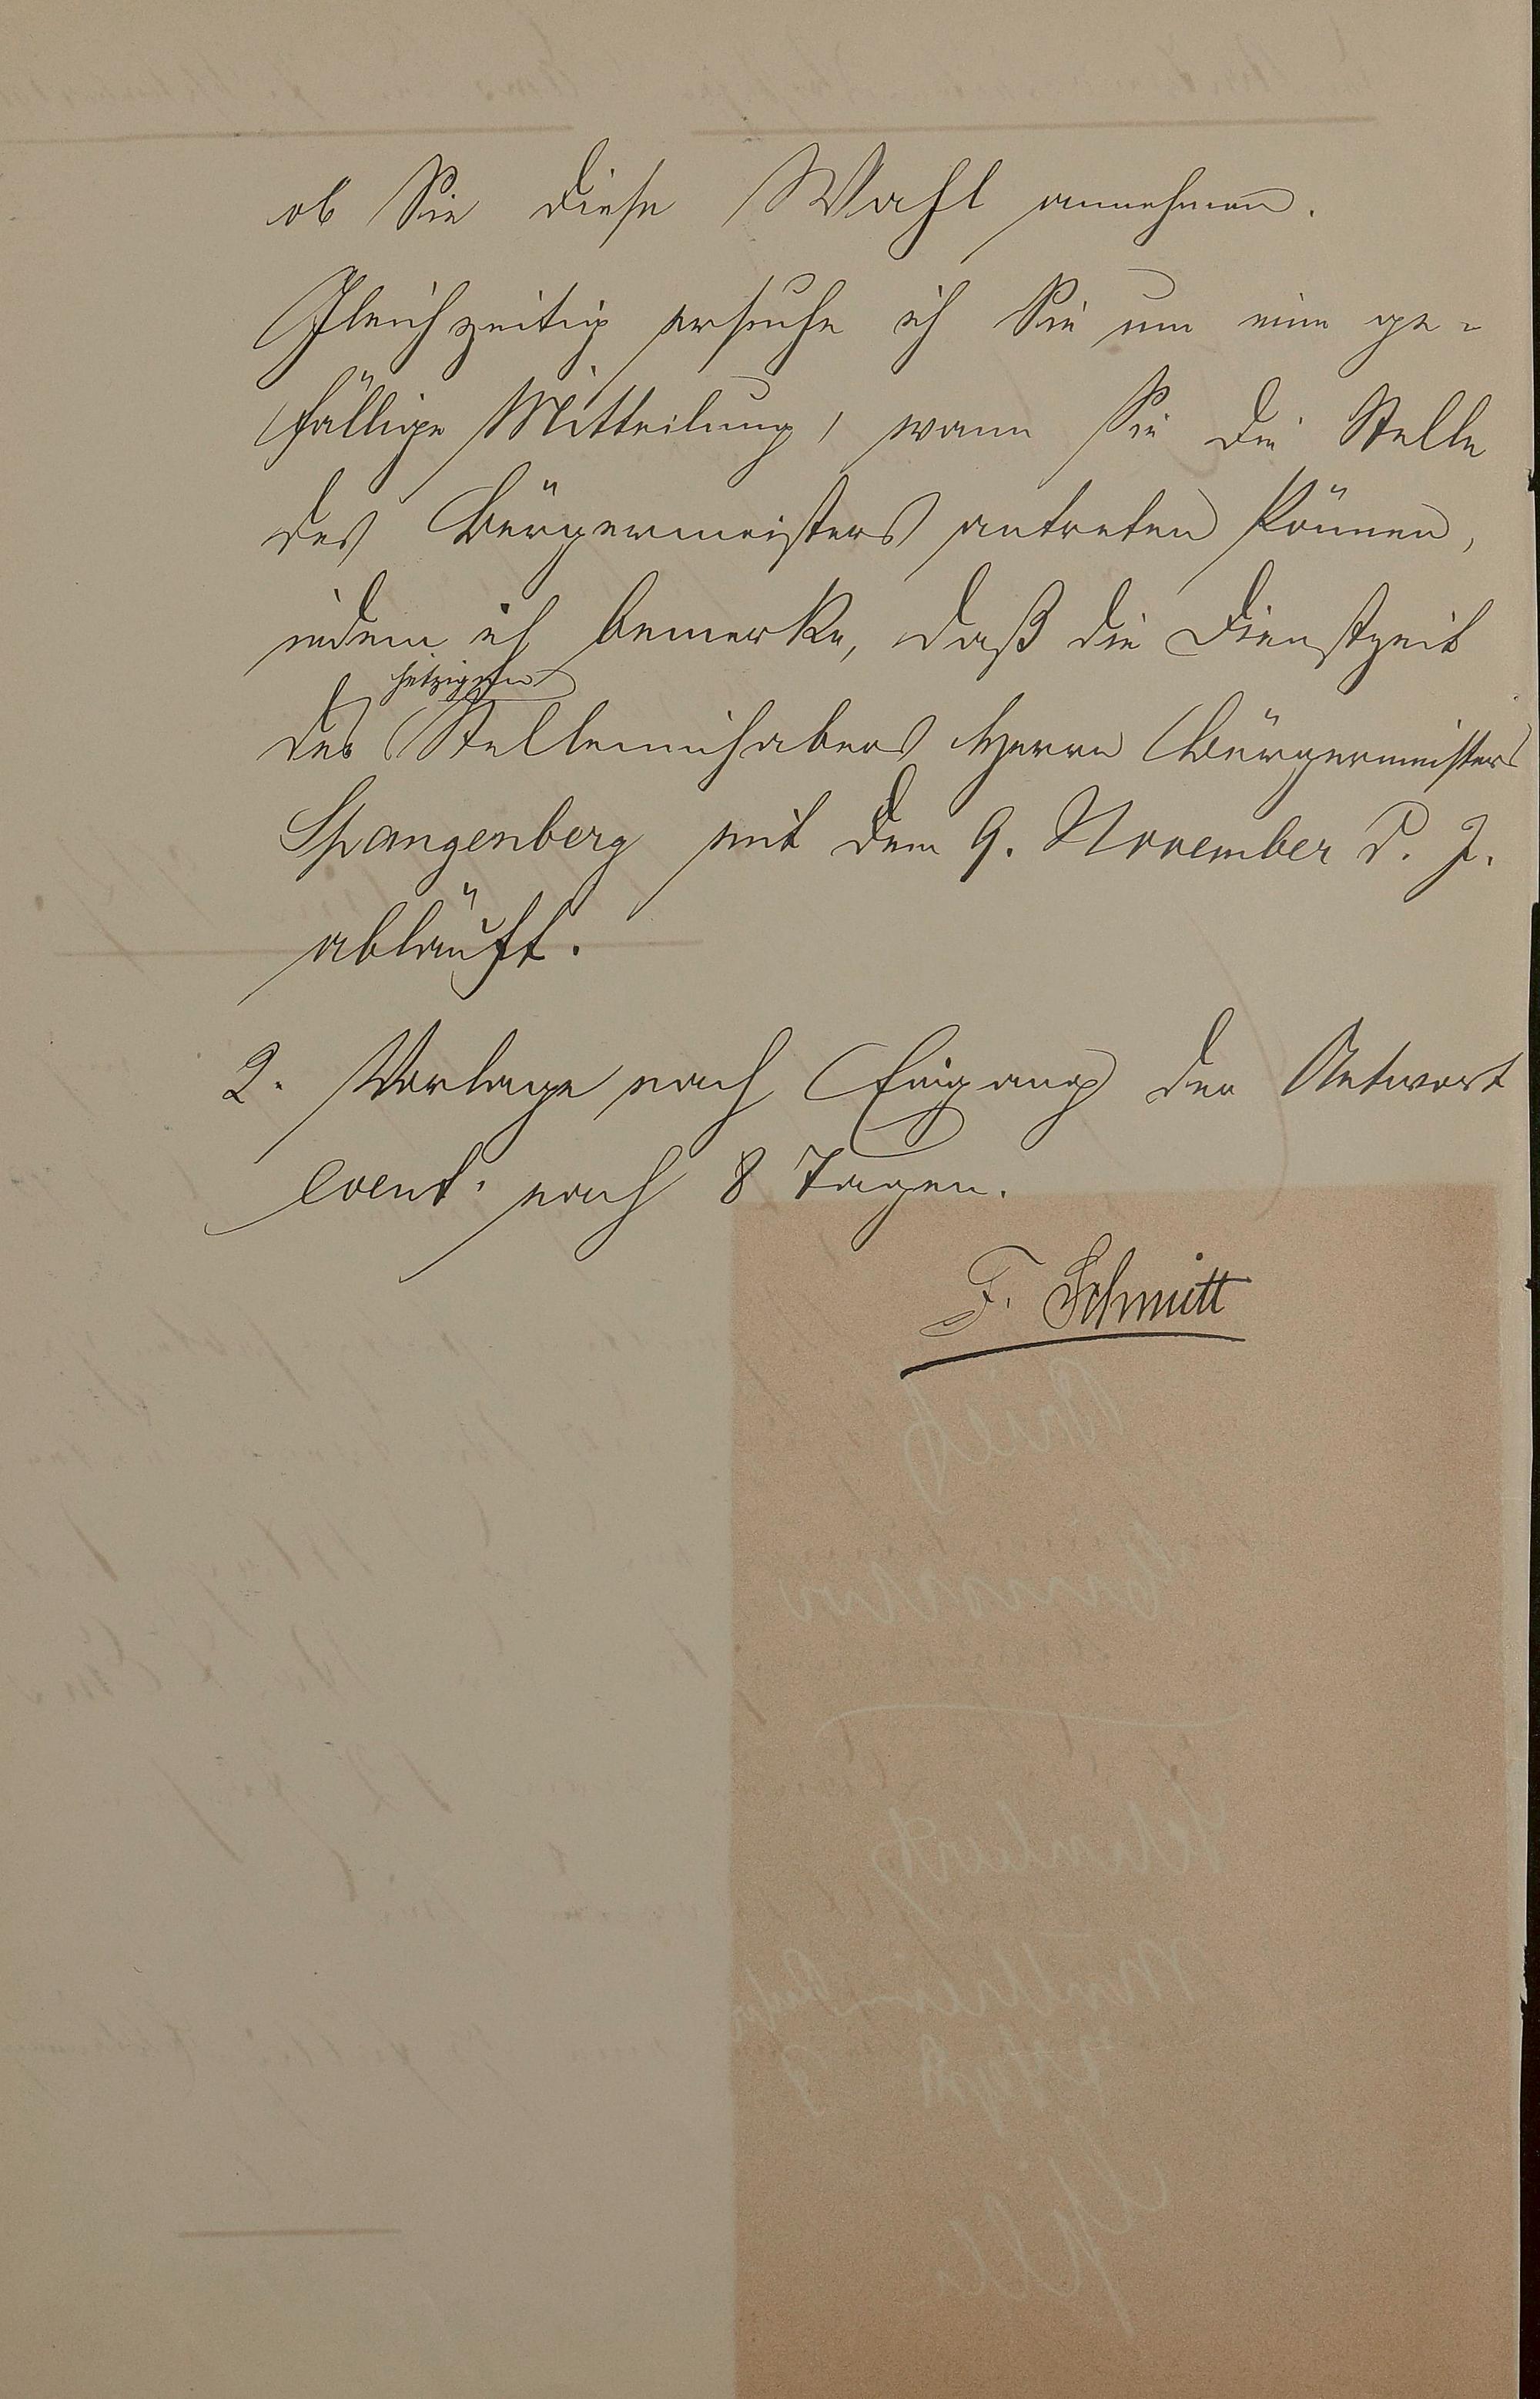 ob Sie diese Wahl annehmen.
Gleichzeitig ersuche ich Sie um eine ge-
fällige Mitteilung, wann Sie die Stelle
des Bürgermeisters antreten können,
indem ich bemerke, daß die Dienstzeit
jetzigen
des Stelleninhabers Herrn Bürgermeisters
Spangenberg mit dem 9. November d. J.
abläuft.
2. Vorlage nach Eingang der Antwort
event. nach 8 Tagen.
F. Schmitt